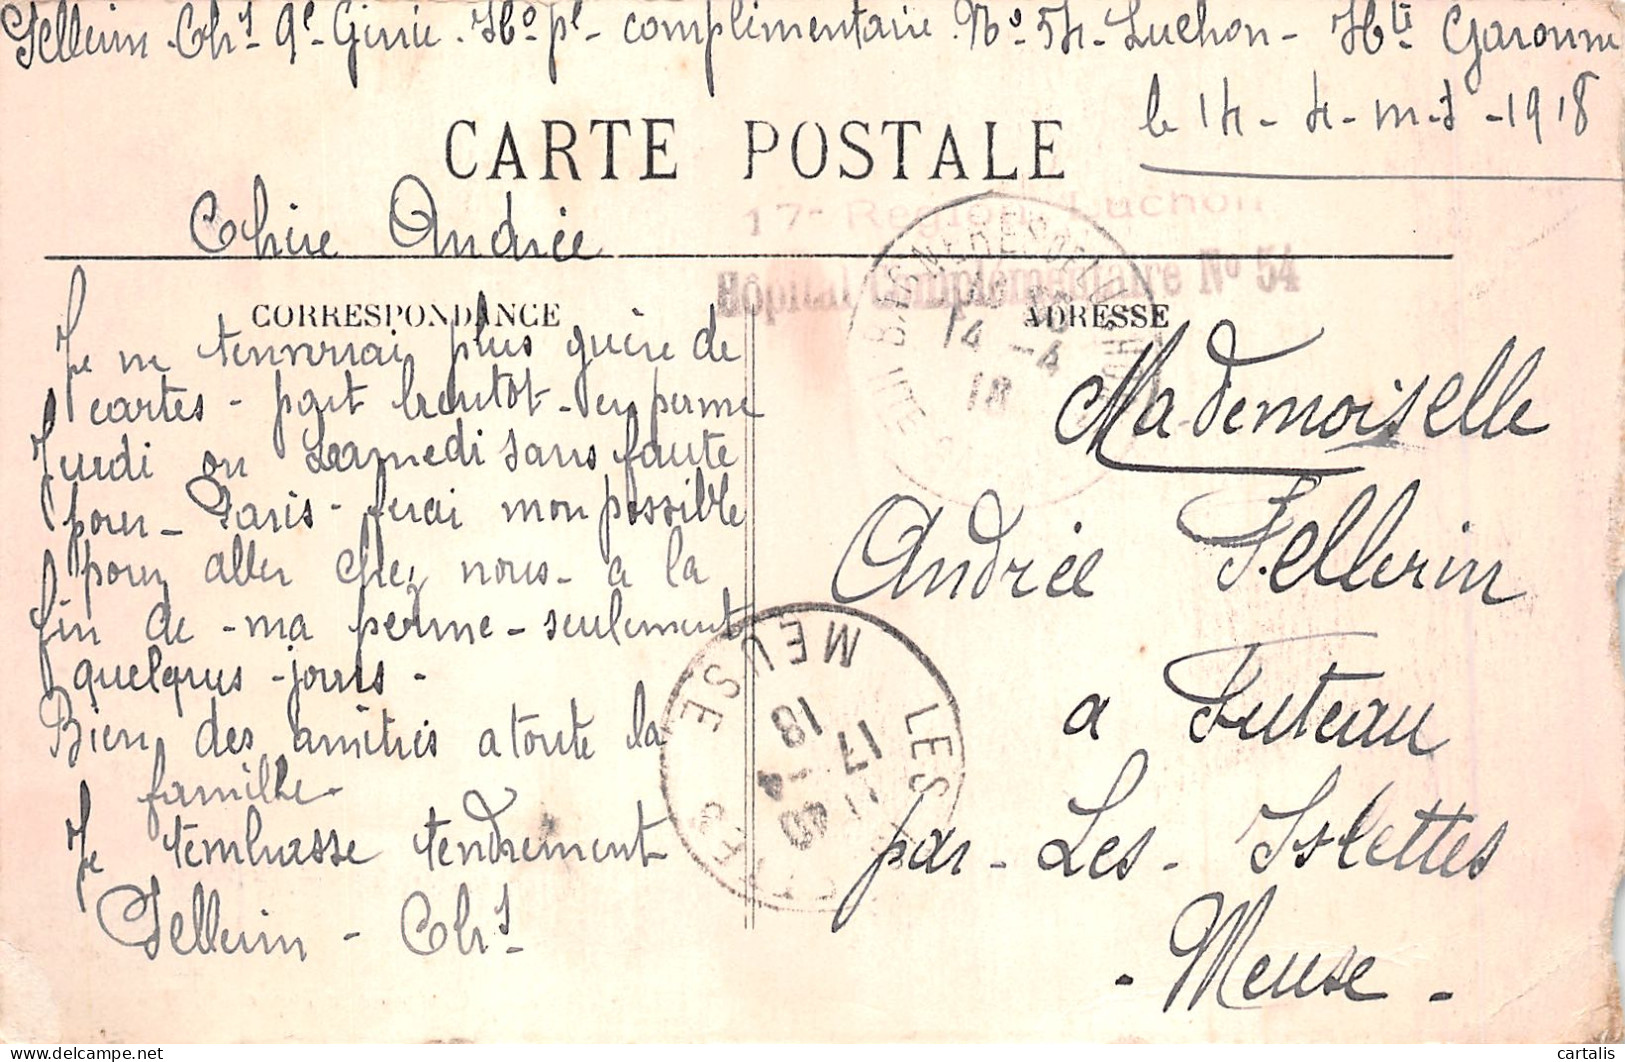 Pellerin Chs 9e Génie. Hopl- complémentaire No 54- Luchon- Hte Garonne
le 14-4-ms-1918
CARTE POSTALE
17e Région Luchon
Hôpital Complémentaire No 54
BAGNERES DE LUCHON
14-4
18
HTE
Chère Andrée
CORRESPONDANCE
Je ne tenverrai plus guère de
cartes - part bientot - en perme
Jeudi ou Samedi sans faute
pour - Paris - ferai mon possible
pour aller chez nous - a la
fin de - ma perme - seulement
quelques - jours -
Bien des amitiés a toute la
famille -
Je tembrasse tendrement
Pellerin - Chs
ADRESSE
Mademoiselle
Andrée Pellerin
a Futeau
par - Les - Islettes
- Meuse -
LES ISLETTES
MEUSE
17-4
18
cartalis
delcampe.net